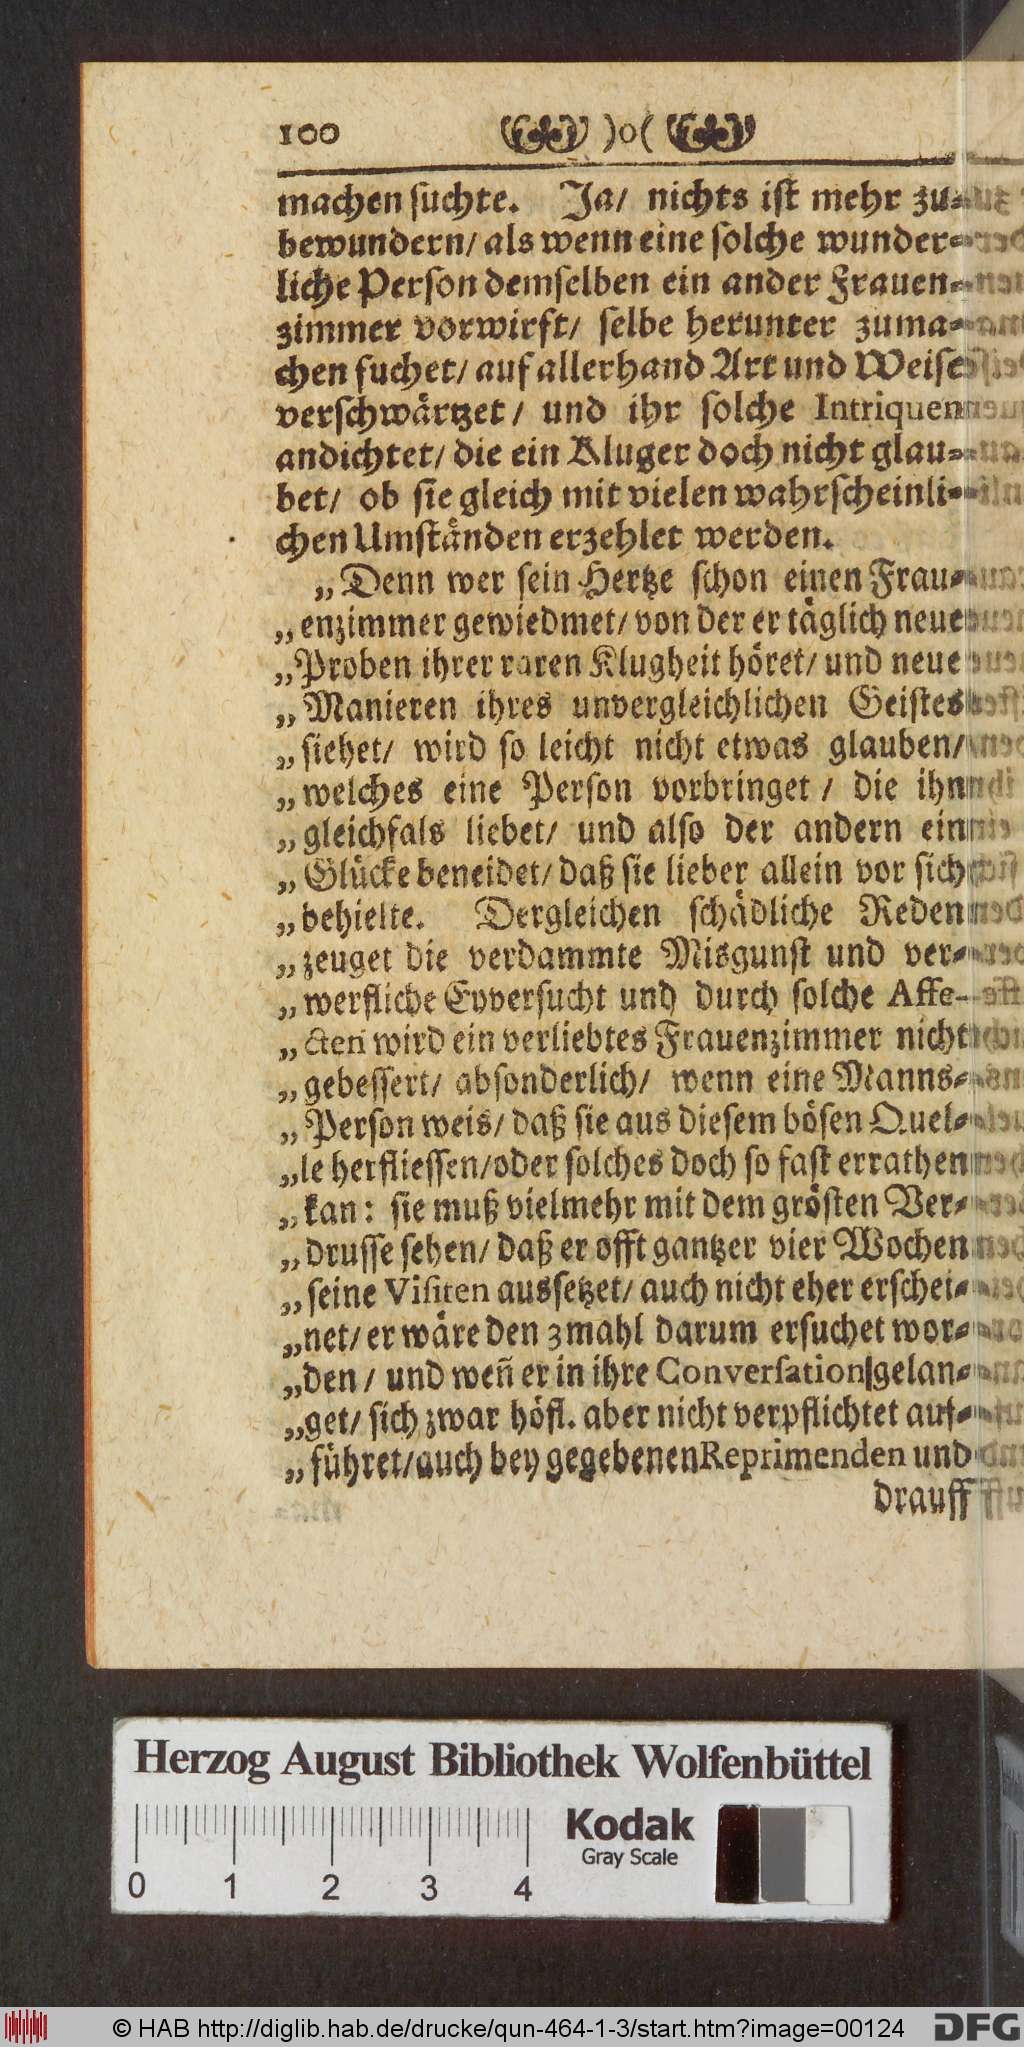 100 )o(
machen suchte. Ja/ nichts ist mehr zu-
bewundern/ als wenn eine solche wunder-
liche Person demselben ein ander Frauen-
zimmer vorwirft/ selbe herunter zuma-
chen suchet/ auf allerhand Art und Weise
verschwärtzet/ und ihr solche Intriquen
andichtet/ die ein Kluger doch nicht glau-
bet/ ob sie gleich mit vielen wahrscheinli-
chen Umständen erzehlet werden.
„Denn wer sein Hertze schon einen Frau-
„enzimmer gewiedmet/ von der er täglich neue
„Proben ihrer raren Klugheit höret/ und neue
„Manieren ihres unvergleichlichen Geistes
„siehet/ wird so leicht nicht etwas glauben/
„welches eine Person vorbringet/ die ihn
„gleichfals liebet/ und also der andern ein
„Glücke beneidet/ daß sie lieber allein vor sich
„behielte. Dergleichen schädliche Reden
„zeuget die verdammte Misgunst und ver-
„werfliche Eyversucht und durch solche Affe-
„cten wird ein verliebtes Frauenzimmer nicht
„gebessert/ absonderlich/ wenn eine Manns-
„Person weis/ daß sie aus diesem bösen Quel-
„le herfliessen/ oder solches doch so fast errathen
„kan: sie muß vielmehr mit dem grösten Ver-
„drusse sehen/ daß er offt gantzer vier Wochen
„seine Visiten aussetzet/ auch nicht eher erschei-
„net/ er wäre den 3mahl darum ersuchet wor-
„den/ und weñ er in ihre Conversation gelan-
„get/ sich zwar höfl. aber nicht verpflichtet auf-
„führet/ auch bey gegebenen Reprimenden und
drauff
Herzog August Bibliothek Wolfenbüttel
Kodak
Gray Scale
0 1 2 3 4
© HAB http://diglib.hab.de/drucke/qun-464-1-3/start.htm?image=00124 DFG